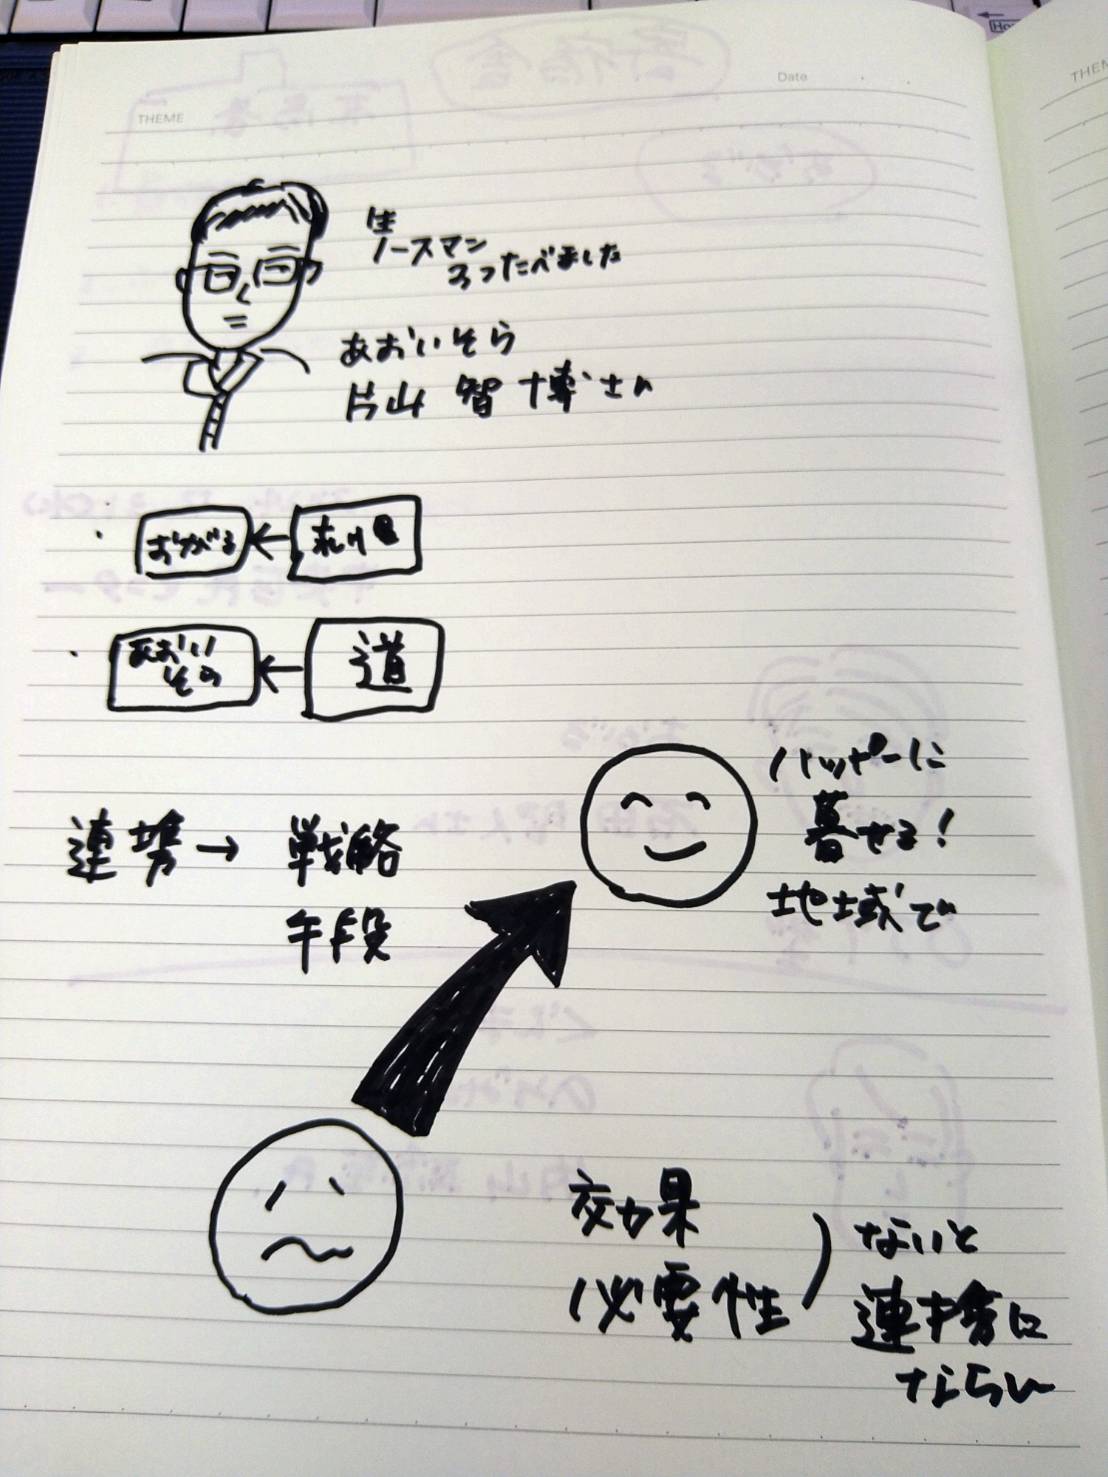 THEME
Date
生
ノースマン
3つたべました
あおいそら
片山 智博さん
おがる ← 札幌
あおい
そら ← 道
連携 → 戦略
手段
ハッピーに
暮せる!
地域で
効果
必要性
ないと
連携に
ならない